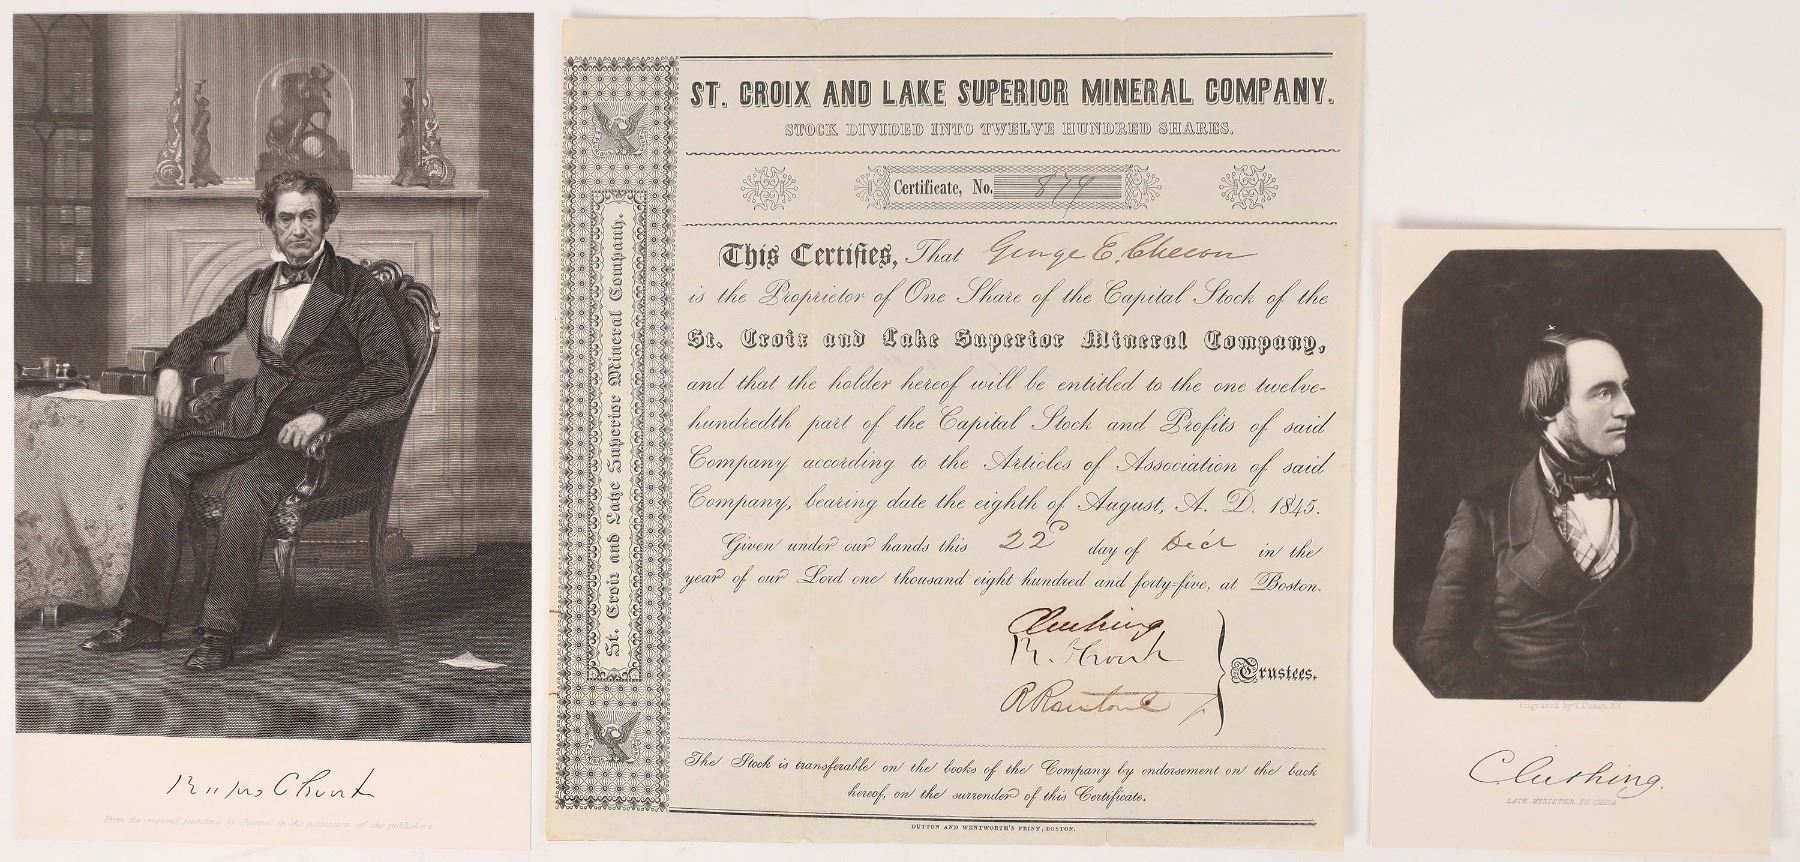 Rufus Choate
From the original painting by Chappel in the possession of the publishers
St. Croix and Lake Superior Mineral Company.
ST. CROIX AND LAKE SUPERIOR MINERAL COMPANY.
STOCK DIVIDED INTO TWELVE HUNDRED SHARES.
Certificate, No. 879
This Certifies, That George E.
is the Proprietor of One Share of the Capital Stock of the
St. Croix and Lake Superior Mineral Company,
and that the holder hereof will be entitled to the one twelve-
hundredth part of the Capital Stock and Profits of said
Company according to the Articles of Association of said
Company, bearing date the eighth of August, A. D. 1845.
Given under our hands this 22d day of Decr in the
year of our Lord one thousand eight hundred and forty-five, at Boston.
C Cushing
R. Choate
R Rantoul Jr.
Trustees.
The Stock is transferable on the books of the Company by endorsement on the back
hereof, on the surrender of this Certificate.
DUTTON AND WENTWORTH'S PRINT, BOSTON.
Engraved by T. Doney, N.Y.
C Cushing.
LATE MINISTER TO CHINA